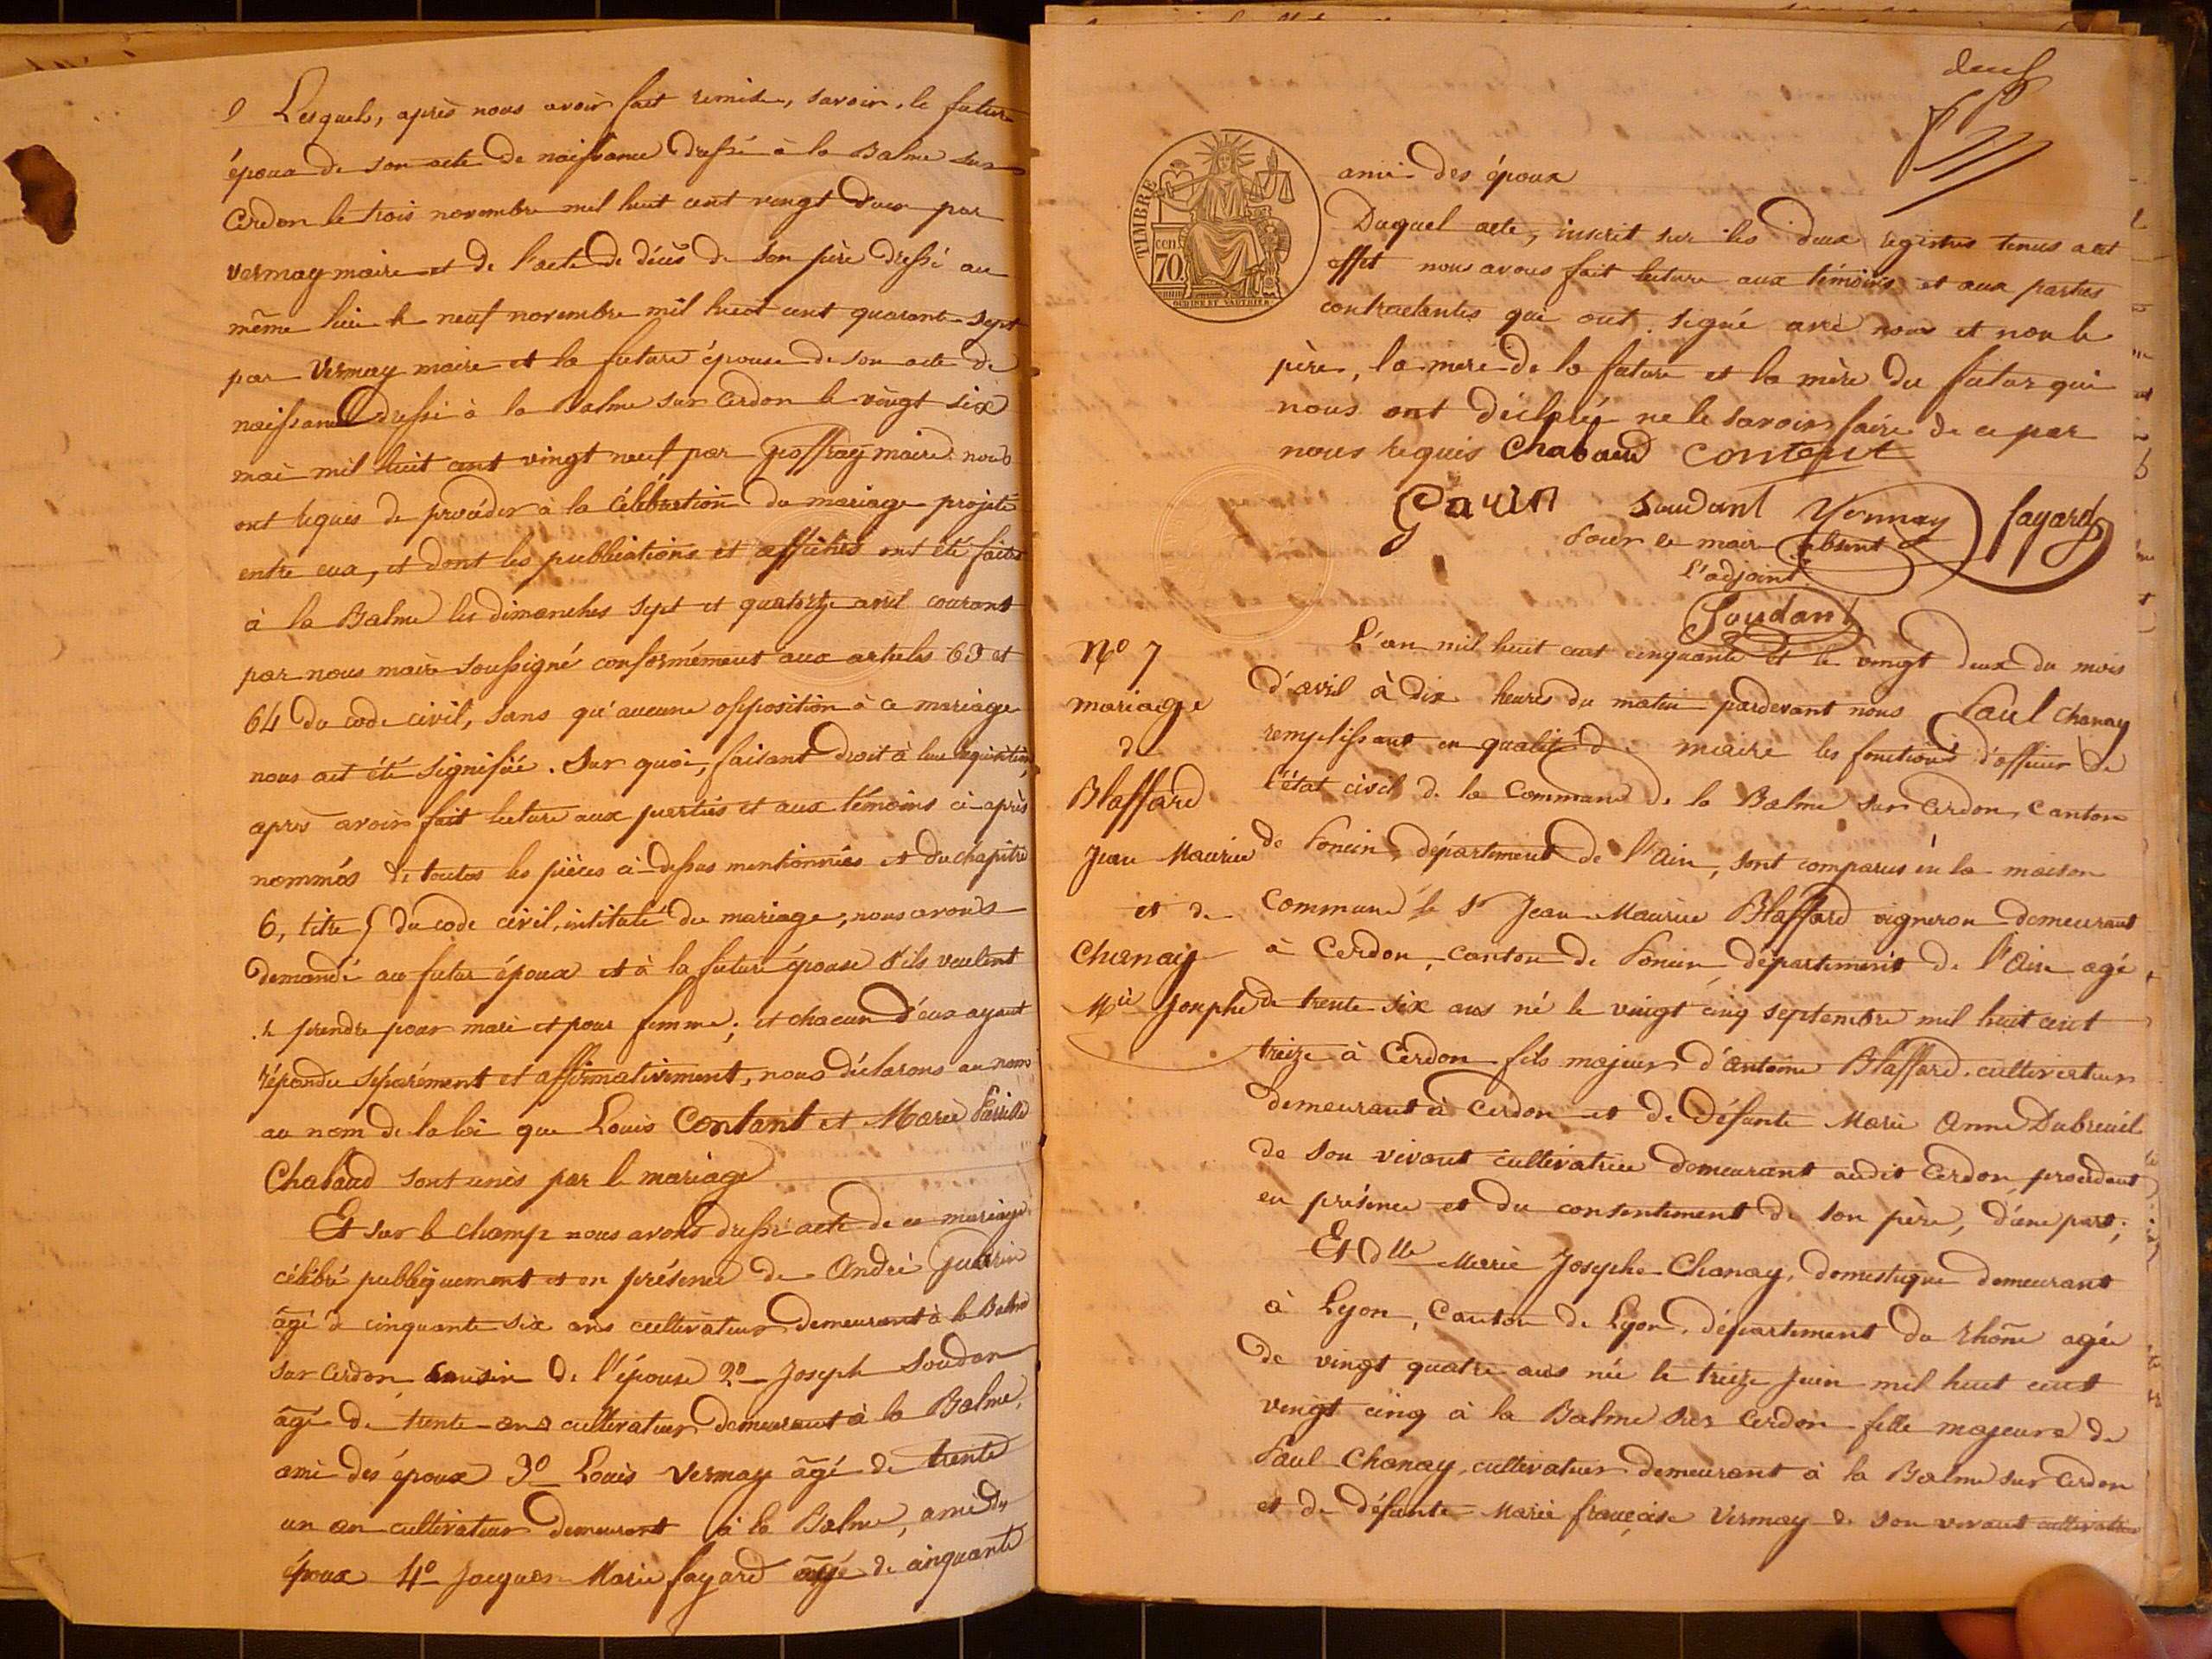 Lesquels, après nous avoir fait remise, savoir, le futur
époux de son acte de naissance dressé à la Balme sur
Cerdon le trois novembre mil huit cent vingt deux par
Vermay maire et de l'acte de décès de son père dressé au
même lieu le neuf novembre mil huit cent quarante sept
par Vermay maire et la future épouse de son acte de
naissance dressé à la Balme sur Cerdon le vingt six
mai mil huit cent vingt neuf par Joffray maire nous
ont requis de procéder à la célébration du mariage projeté
entre eux, et dont les publications et affiches ont été faites
à la Balme les dimanches sept et quatorze avril courant
par nous maire soussigné conformément aux articles 63 et
64 du code civil, sans qu'aucune opposition à ce mariage
nous ait été signifiée. Sur quoi, faisant droit à leur requisition,
après avoir fait lecture aux parties et aux témoins ci-après
nommés de toutes les pièces ci-dessus mentionnées et du chapitre
6, titre 5 du code civil, intitulé du mariage, nous avons
demandé au futur époux et à la future épouse s'ils veulent
se prendre pour mari et pour femme; et chacun d'eux ayant
répondu séparément et affirmativement, nous déclarons au nom
au nom de la loi que Louis Contant et Marie
Chabaud sont unis par le mariage
Et sur le champ nous avons dressé acte de ce mariage
célébré publiquement et en présence de André Guerin
âgé de cinquante six ans cultivateur demeurant à la Balme
sur Cerdon cousin de l'épouse 2º Joseph Soudan
âgé de trente ans cultivateur demeurant à la Balme,
ami des époux 3º Louis Vermay âgé de trente
un an cultivateur demeurant à la Balme, ami des
époux 4º Jacques Marie fayard âgé de cinquante
deux
TIMBRE
cen.
70
OUDINE ET VAUTHIER
ami des époux
Duquel acte, inscrit sur les deux registres tenus à cet
effet nous avons fait lecture aux témoins et aux parties
contractantes qui ont signé avec nous et non le
père, la mere de la future et la mère du futur qui
nous ont déclaré ne le savoir faire de ce par
nous requis Chabaud Contant
Garin Soudant Vermay fayard
Pour le maire absent
l'adjoint
Soudant
Nº 7
mariage
de
Blaffard
Jean Maurice
et de
Chanay
Mie Josephe
L'an mil huit cent cinquante et le vingt deux du mois
d'avril à dix heures du matin pardevant nous Paul Chanay
remplissant en qualité de maire les fonctions d'officier de
l'état civil de la Commune de la Balme sur Cerdon, Canton
de Poncin, département de l'Ain, sont comparus en la maison
Commune le Sr Jean Maurice Blaffard vigneron demeurant
à Cerdon, canton de Poncin département de l'Ain agé
de trente six ans né le vingt cinq septembre mil huit cent
treize à Cerdon fils majeur d'antoine Blaffard cultivateur
demeurant à Cerdon et de Défunte Marie Anne Dubreuil
de son vivant cultivatrice demeurant audit Cerdon procédant
en présence et du consentement de son père, d'une part;
Et Dlle Marie Josephe Chanay, domestique demeurant
à Lyon, Canton de Lyon, département du Rhône agée
de vingt quatre ans née le treize Juin mil huit cent
vingt cinq à la Balme sur Cerdon fille majeure de
Paul Chanay, cultivateur demeurant à la Balme sur Cerdon
et de défunte Marie françoise Vermay de son vivant cultivatrice